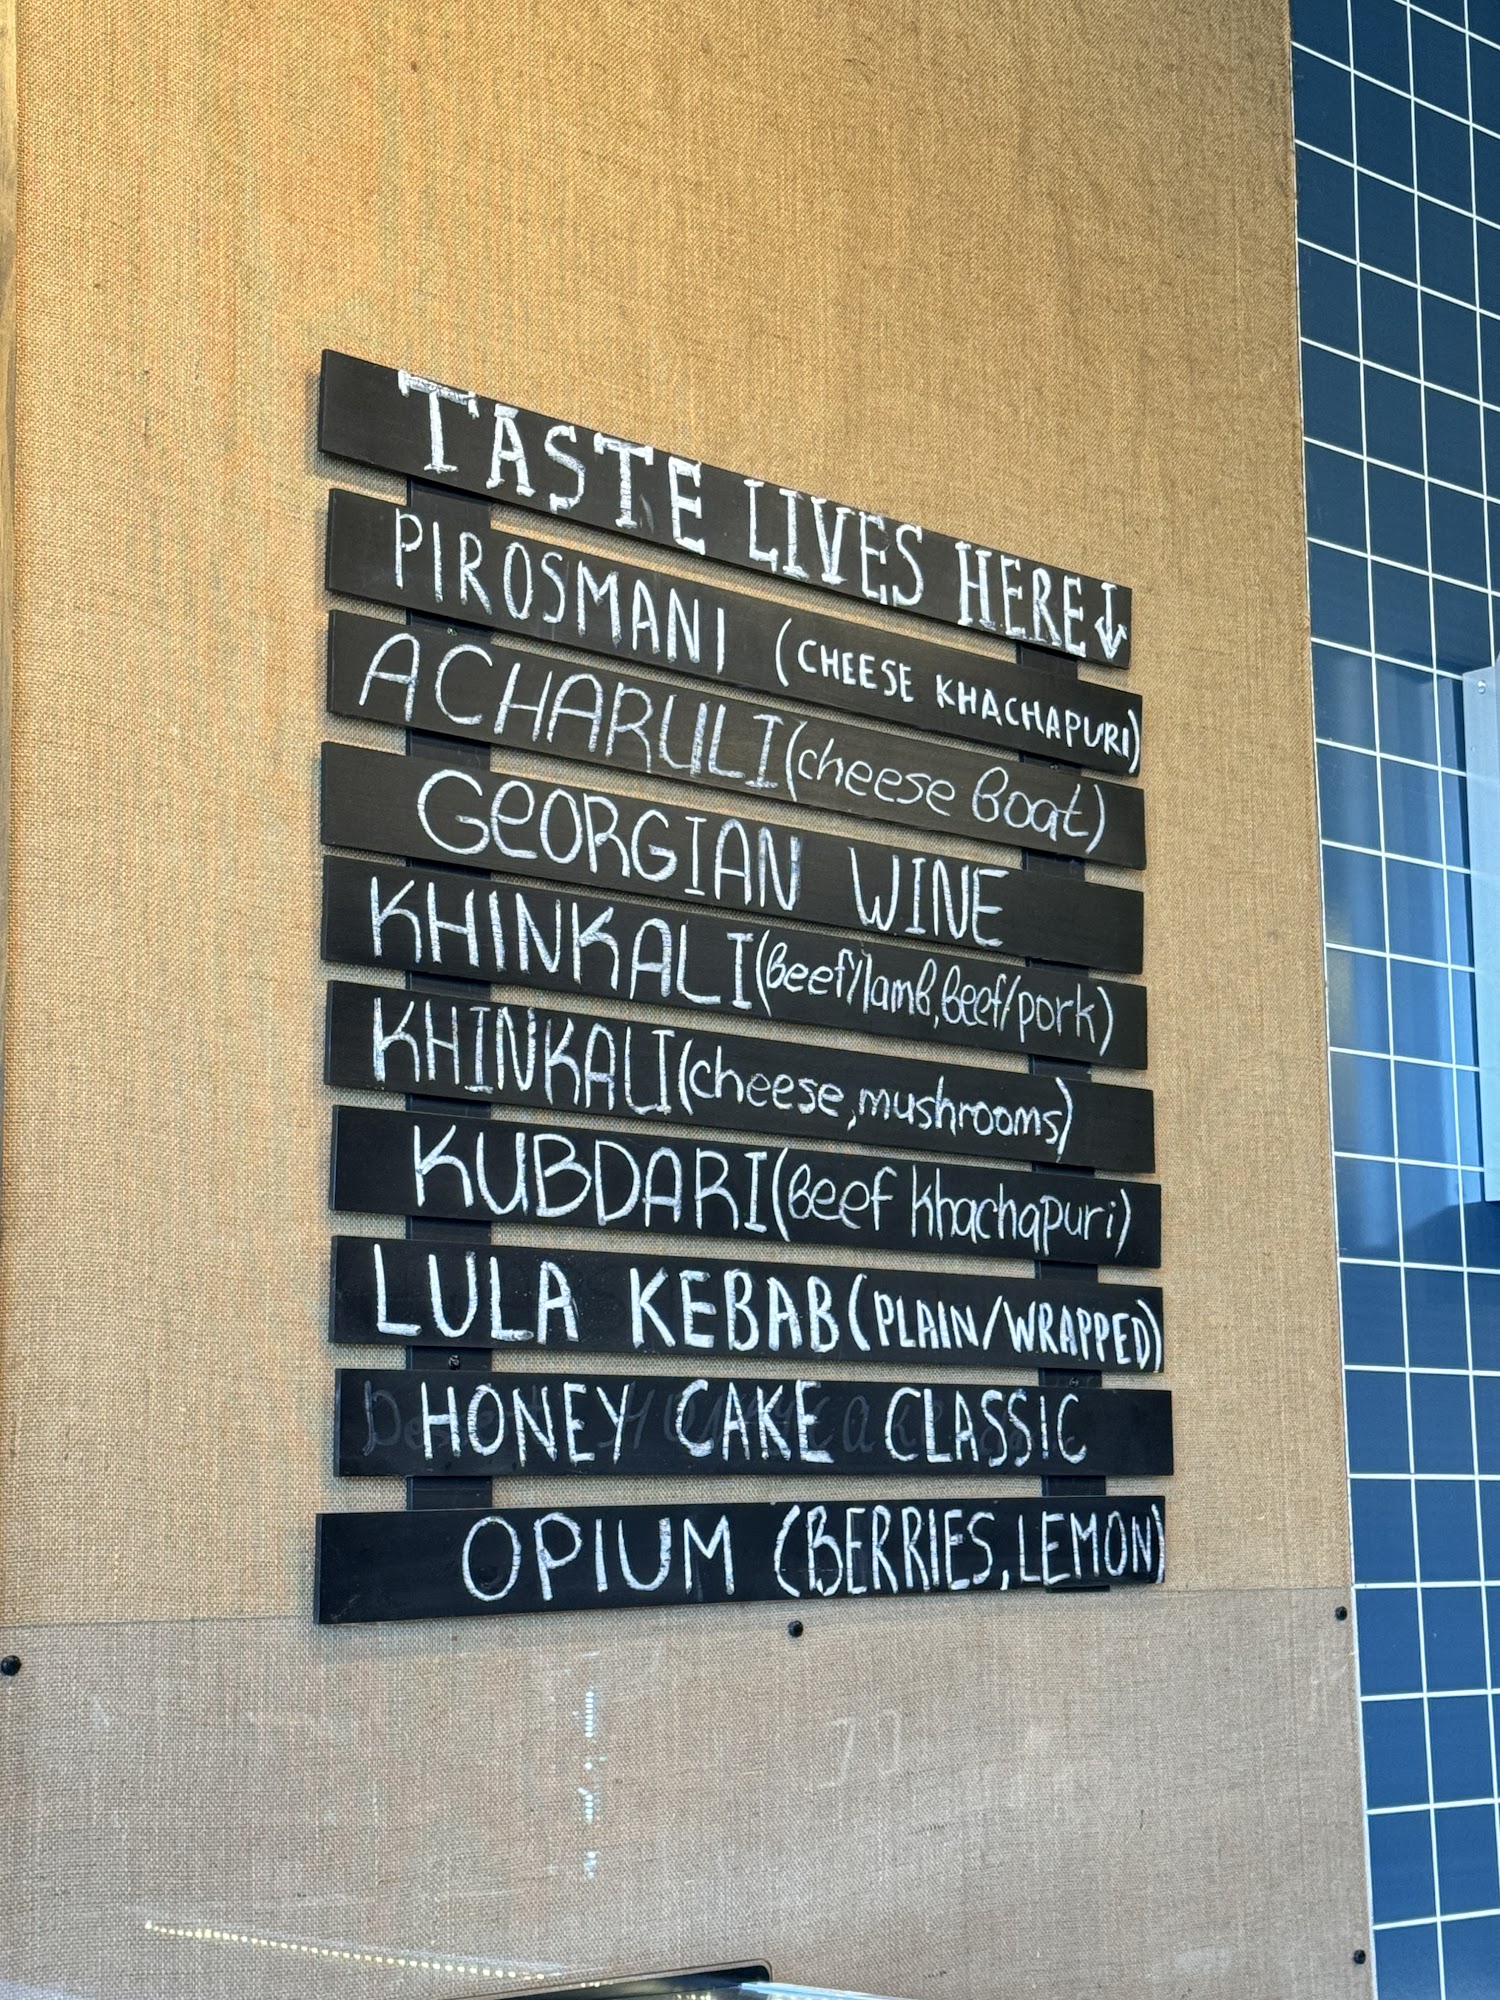 TASTE LIVES HERE↓
PIROSMANI (CHEESE KHACHAPURI)
ACHARULI (cheese boat)
GEORGIAN WINE
KHINKALI (beef/lamb, beef/pork)
KHINKALI (cheese, mushrooms)
KUBDARI (beef khachapuri)
LULA KEBAB (PLAIN/WRAPPED)
HONEY CAKE CLASSIC
OPIUM (BERRIES, LEMON)